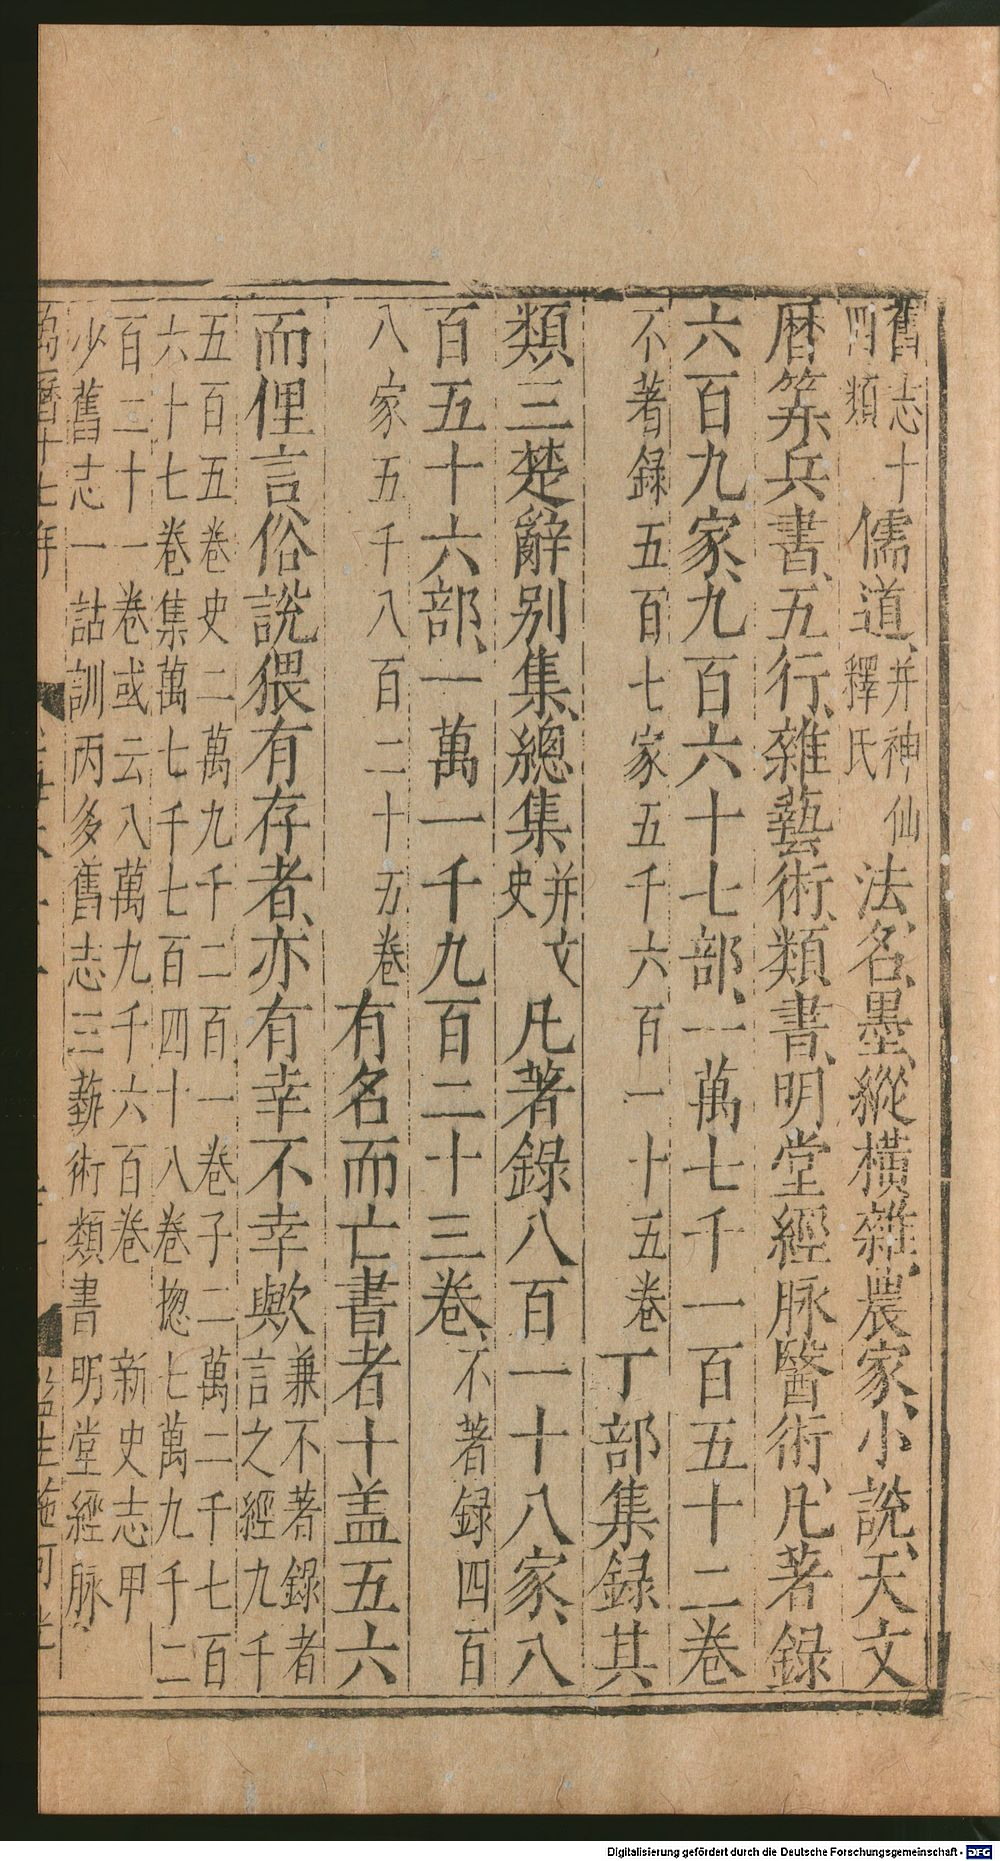 舊志十四類儒道、并神仙釋氏法、名、墨、縱橫、雜、農家、小說、天文
曆筭、兵書、五行、雜藝術、類書、明堂經脉醫術、凡著録
六百九家、九百六十七部、一萬七千一百五十二卷
不著録五百七家五千六百一十五卷丁部集録其
類三楚辭別集、總集并文史凡著録八百一十八家、八
百五十六部、一萬一千九百二十三卷、不著録四百
八家五千八百二十五卷有名而亡書者十盖五六
而俚言俗說猥有存者、亦有幸不幸歟兼不著錄者言之經九千
五百五卷史二萬九千二百一卷子二萬二千七百
六十七卷集萬七千七百四十八卷揔七萬九千二
百二十一卷或云八萬九千六百卷 新史志甲
少舊志一詁訓丙多舊志三藝術類書明堂經脉
萬曆十七年
Digitalisierung gefördert durch die Deutsche Forschungsgemeinschaft - DFG